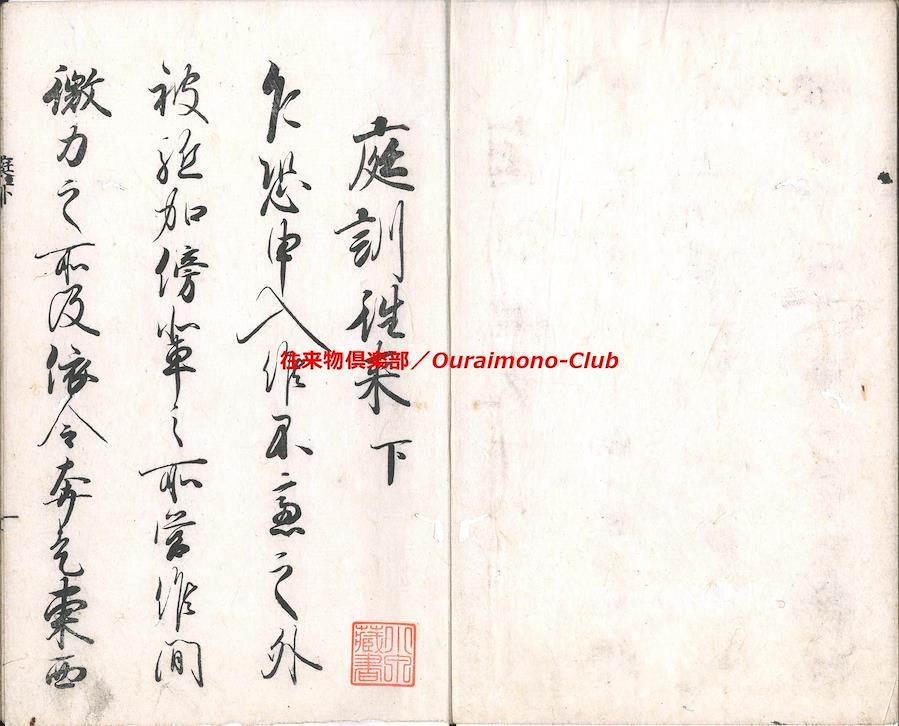 庭訓往来下
乍恐申入候不慮之外
被駈加傍輩之所営候間
微力之所及依令奔走東西
往来物倶楽部／Ouraimono-Club
藏書